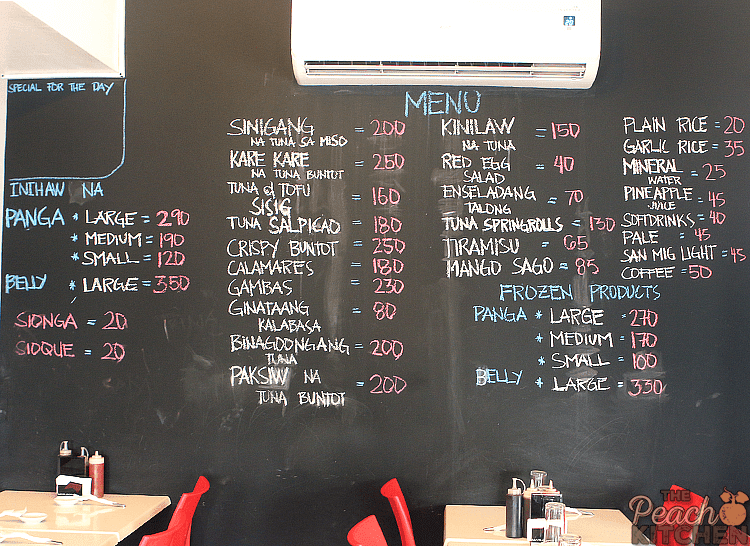 SPECIAL FOR THE DAY
INIHAW NA
PANGA * LARGE = 290
* MEDIUM = 190
* SMALL = 120
BELLY * LARGE = 350
SIONGA = 20
SIOQUE = 20
MENU
SINIGANG = 200
NA TUNA SA MISO
KARE KARE = 250
NA TUNA BUNTOT
TUNA & TOFU = 160
SISIG
TUNA SALPICAO = 180
CRISPY BUNTOT = 250
CALAMARES = 180
GAMBAS = 230
GINATAANG = 80
KALABASA
BINAGOONGANG = 200
TUNA
PAKSIW NA = 200
TUNA BUNTOT
KINILAW = 150
NA TUNA
RED EGG = 40
SALAD
ENSELADANG = 70
TALONG
TUNA SPRINGROLLS = 130
TIRAMISU = 65
MANGO SAGO = 85
PLAIN RICE = 20
GARLIC RICE = 35
MINERAL = 25
WATER
PINEAPPLE = 45
JUICE
SOFTDRINKS = 40
PALE = 45
SAN MIG LIGHT = 45
COFFEE = 50
FROZEN PRODUCTS
PANGA * LARGE = 270
* MEDIUM = 170
* SMALL = 100
BELLY * LARGE = 330
THE
Peach
KITCHEN